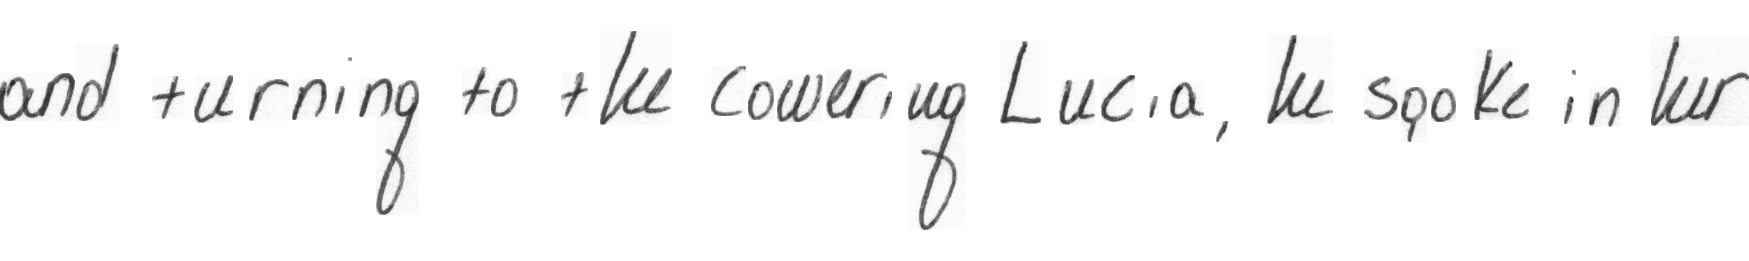 and turning to the cowering Lucia, he spoke in her